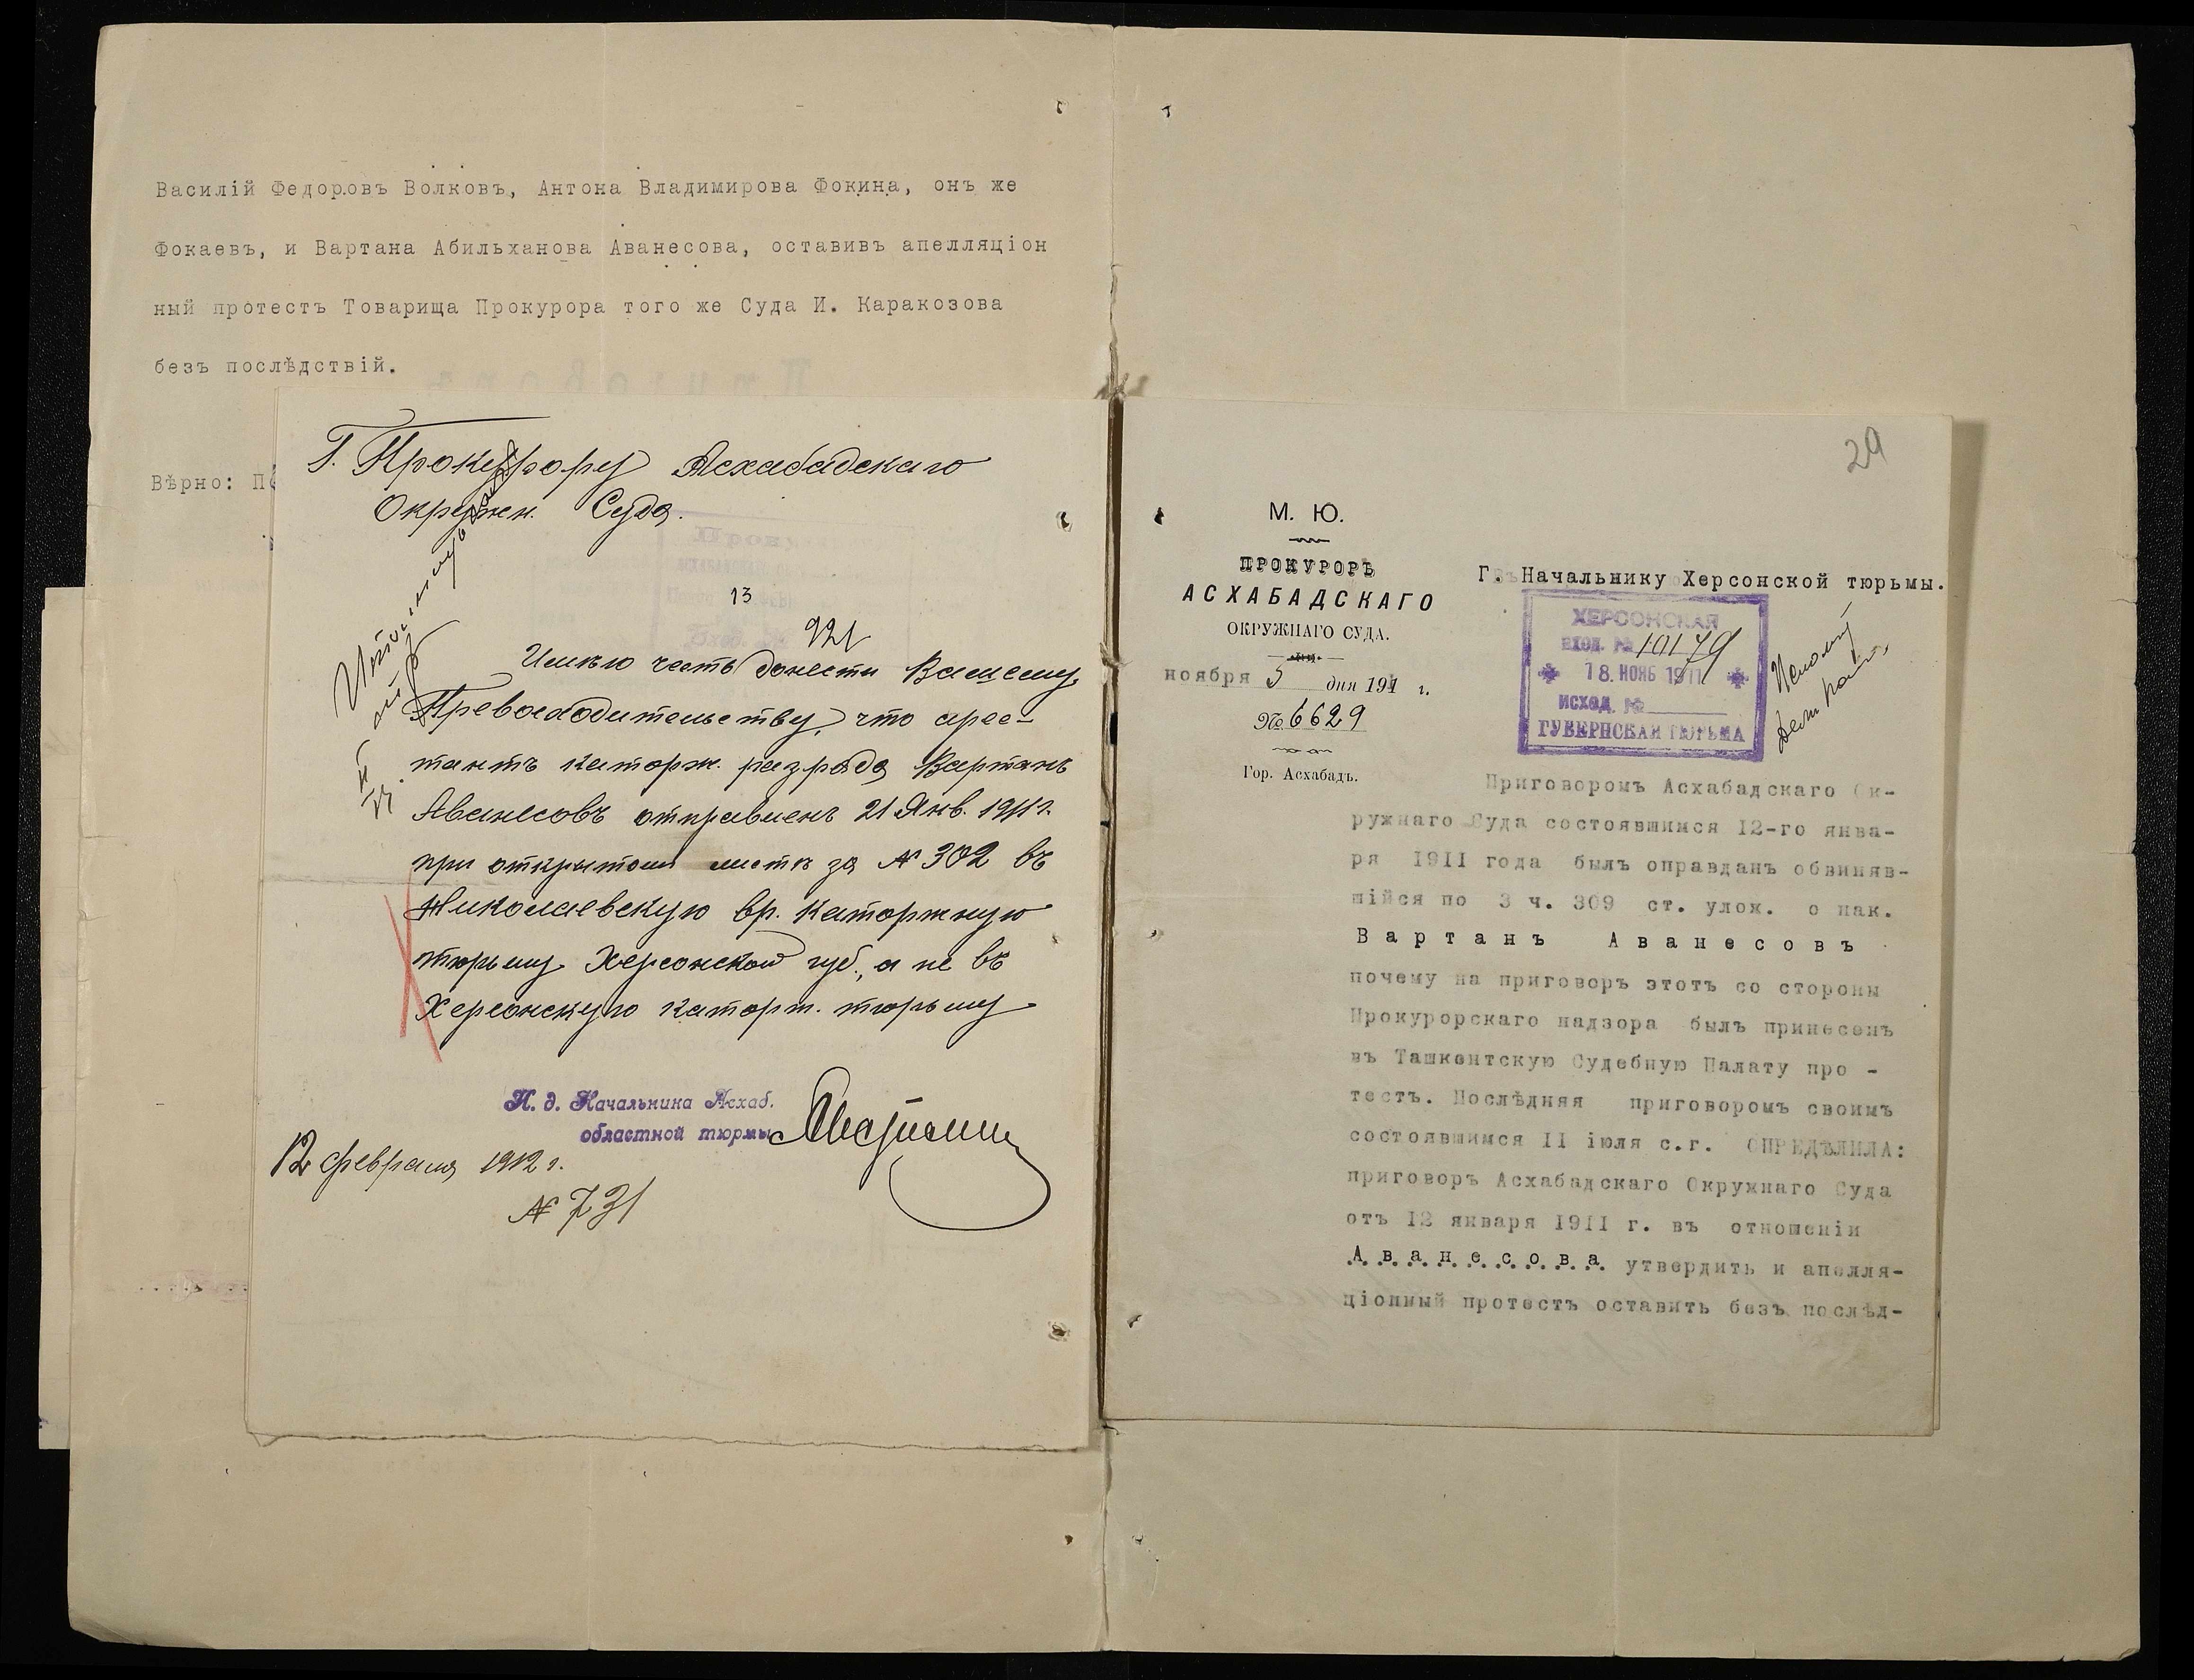 Василій Федоровъ Волковъ, Антона Владимирова Фокина, онъ же
Фокаевъ, и Вартана Абильханова Аванесова, оставивъ апелляціон
ный протестъ Товарища Прокурора того же Суда И. Каракозова
безъ послѣдствій.
Вѣрно:
Г. Прокурору Асхабадскаго
Окружн. Суда.
13
921
Имѣю честь донести Вашему
Превосходительству, что арес-
тантъ каторж. разряда Вартанъ
Аванесовъ отправленъ 21 Янв. 1911 г.
при открытом листѣ за № 302 въ
Николаевскую вр. каторжную
тюрьму Херсонской губ., а не въ
Херсонскую каторж. тюрьму
И. д. Начальника Асхаб.
областной тюрмы
12 февраля 1912 г.
№ 731
29
М. Ю.
ПРОКУРОРЪ
АСХАБАДСКАГО
ОКРУЖНАГО СУДА.
ноября 5 дня 1911 г.
№ 6629
Гор. Асхабадъ.
Г. Начальнику Херсонской тюрьмы.
ХЕРСОНСКАЯ
ВХОД. № 10179
18. НОЯБ 1911
ИСХОД. №
ГУБЕРНСКАЯ ТЮРЬМА
Приговоромъ Асхабадскаго Ок-
ружнаго Суда состоявшимся 12-го янва-
ря 1911 года былъ оправданъ обвиняв-
шійся по 3 ч. 309 ст. улож. о нак.
Вартанъ Аванесовъ
почему на приговоръ этотъ со стороны
Прокурорскаго надзора былъ принесенъ
въ Ташкентскую Судебную Палату про -
тестъ. Послѣдняя приговоромъ своимъ
состоявшимся II іюля с.г. ОПРЕДѢЛИЛА:
приговоръ Асхабадскаго Окружнаго Суда
отъ 12 января 1911 г. въ отношеніи
Аванесова утвердить и апелля-
ціонный протестъ оставить безъ послѣд-